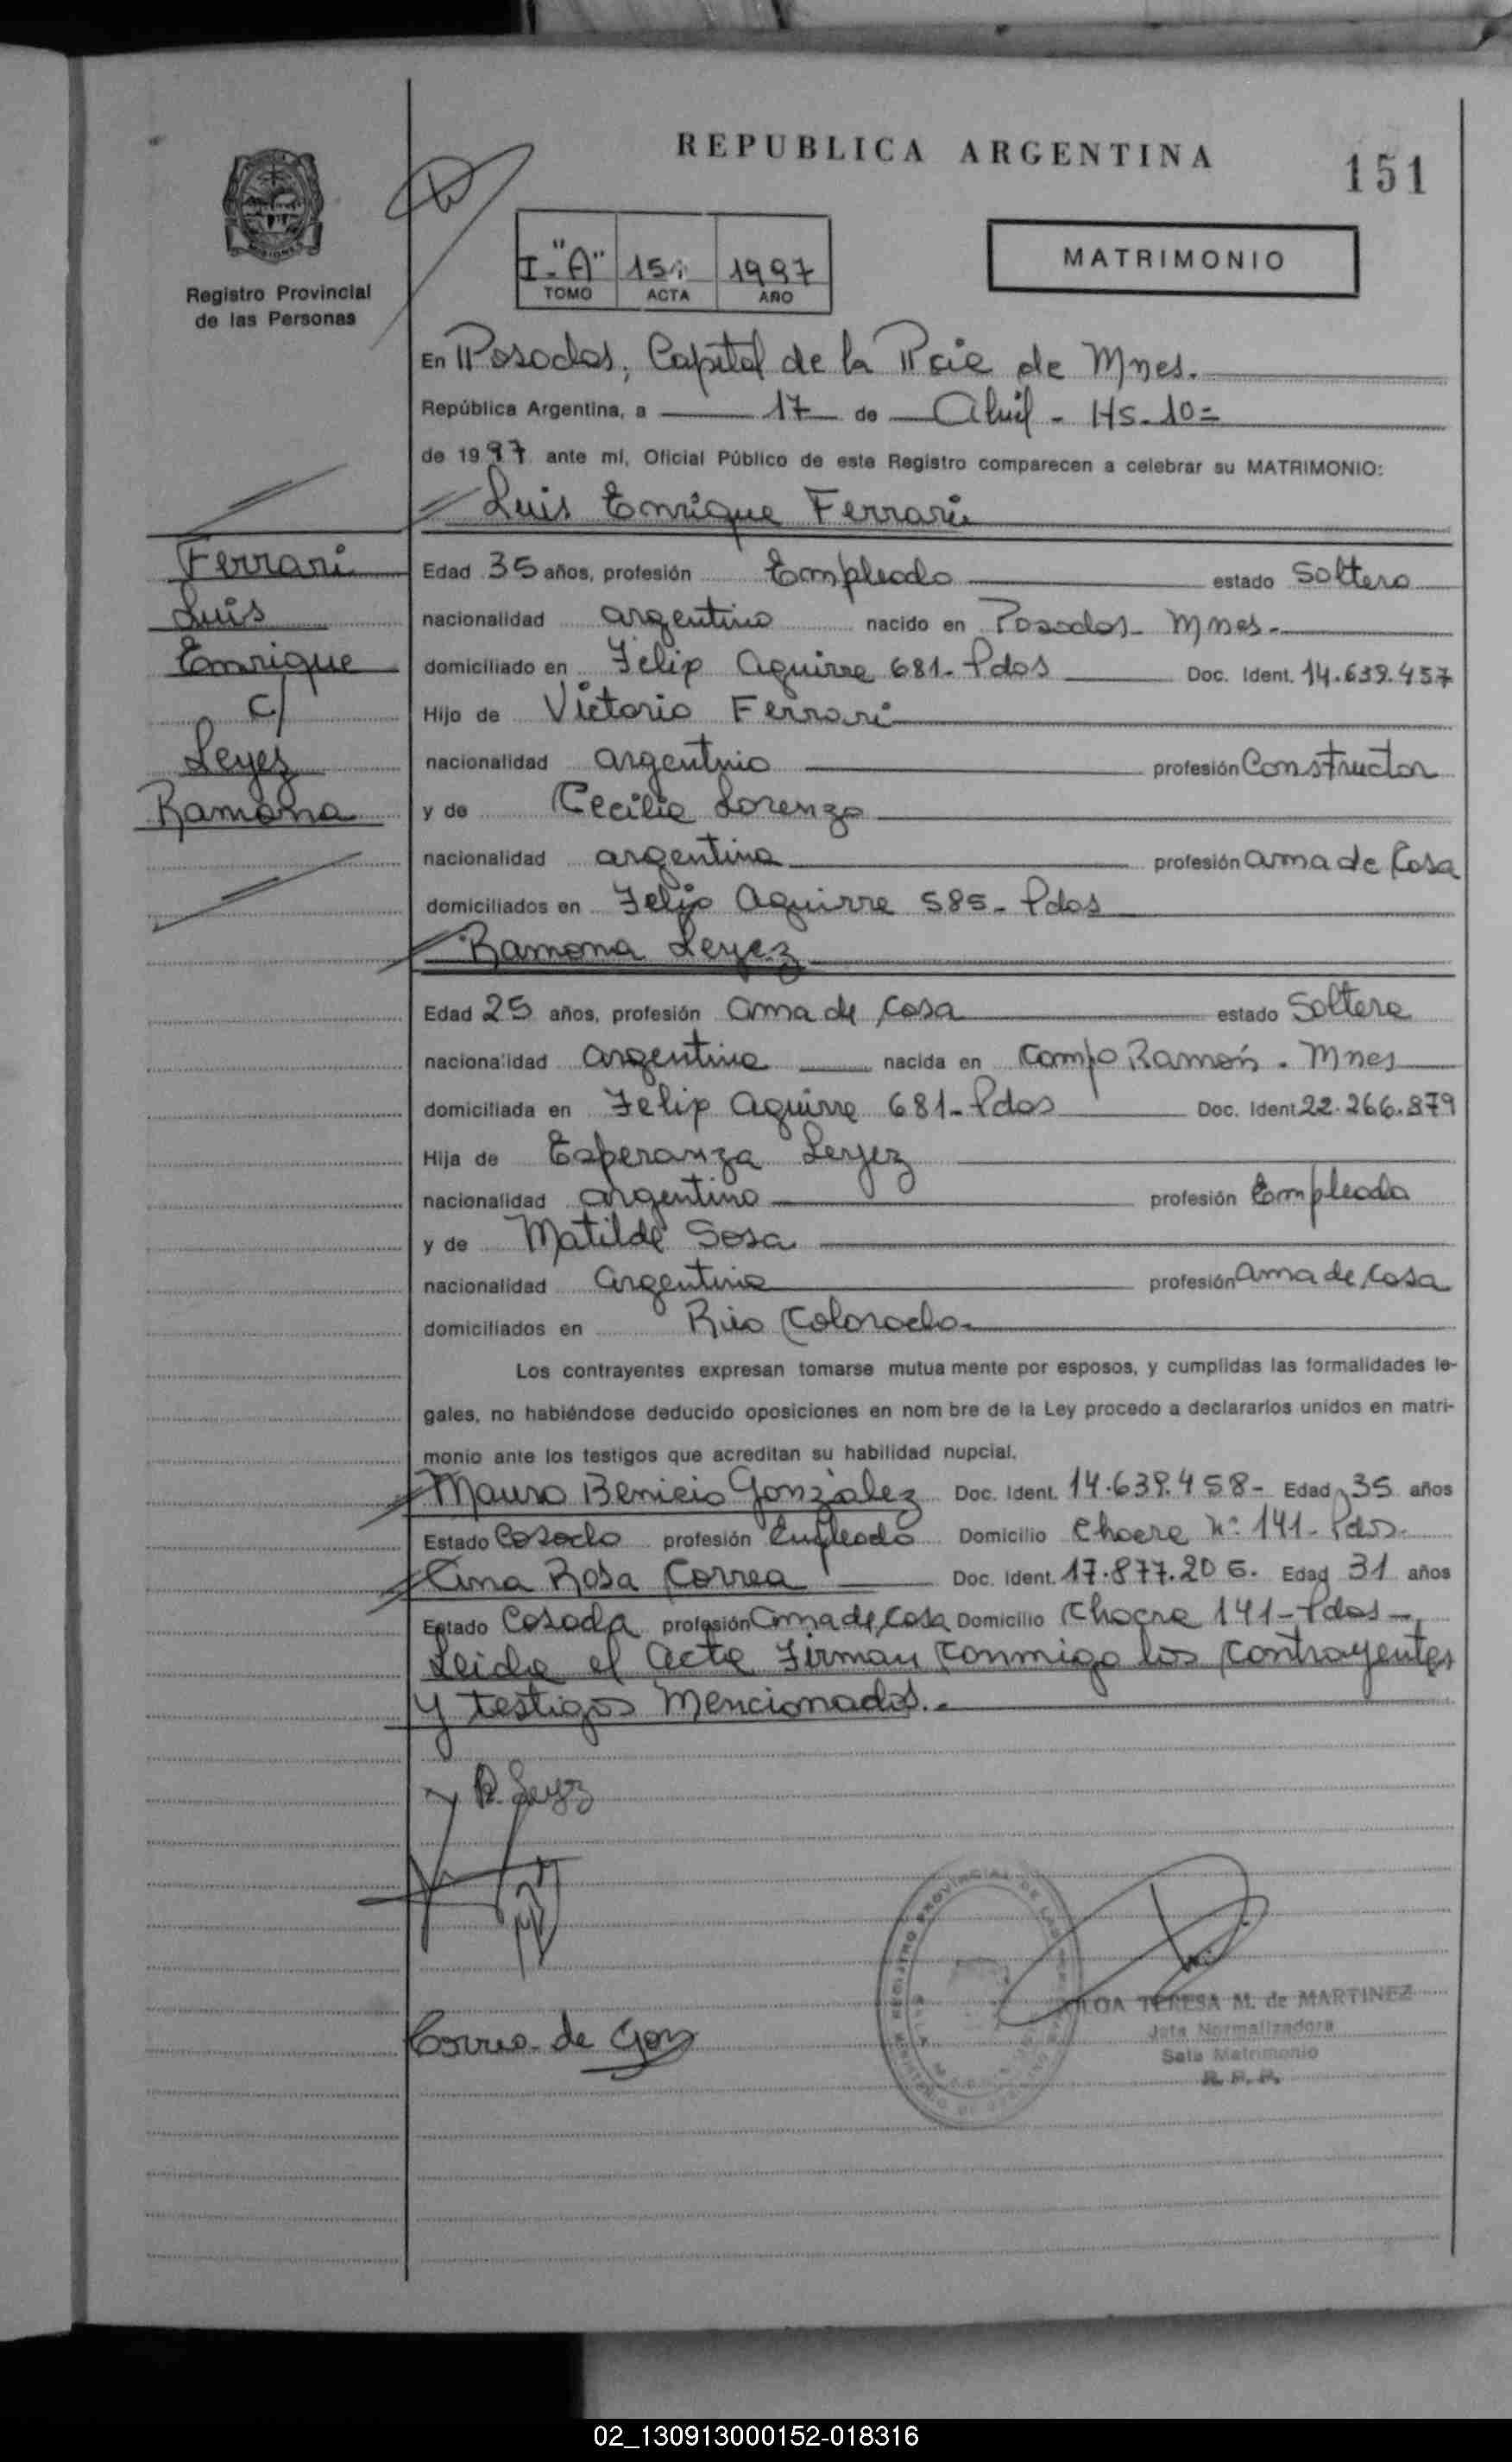 REPUBLICA ARGENTINA
151
Registro Provincial
de las Personas
I-"A" 151 1997
TOMO ACTA AÑO
MATRIMONIO
En Posadas, Capital de la Pcie de Mnes.
República Argentina, a 17 de Abril - Hs. 10=
de 1997 ante mí, Oficial Público de este Registro comparecen a celebrar su MATRIMONIO:
Luis Enrique Ferrari
Ferrari
Luis
Enrique
c/
Leyez
Ramona
Edad 35 años, profesión Empleado estado Soltero
nacionalidad argentino nacido en Posadas - Mnes -
domiciliado en Felix Aguirre 681- Pdas Doc. Ident. 14.639.457
Hijo de Victorio Ferrari
nacionalidad argentino profesión Constructor
y de Cecilia Lorenzo
nacionalidad argentina profesión ama de Casa
domiciliados en Felix Aguirre 585- Pdas
Ramona Leyez
Edad 25 años, profesión ama de casa estado Soltera
nacionalidad argentina nacida en Campo Ramón - Mnes
domiciliada en Felix Aguirre 681- Pdas Doc. Ident 22.266.879
Hija de Esperanza Leyez
nacionalidad argentino profesión Empleado
y de Matilde Sosa
nacionalidad argentina profesión ama de casa
domiciliados en Rio Colorado -
Los contrayentes expresan tomarse mutua mente por esposos, y cumplidas las formalidades le-
gales, no habiéndose deducido oposiciones en nom bre de la Ley procedo a declararlos unidos en matri-
monio ante los testigos que acreditan su habilidad nupcial.
Mauro Benicio González Doc. Ident. 14.639.458- Edad 35 años
Estado Casado profesión Empleado Domicilio Chacra Nº 141- Pdas.
Ana Rosa Correa Doc. Ident. 17.877.206. Edad 31 años
Estado Casada profesión ama de Casa Domicilio Chacra 141- Pdas -
Leida el acta Firman conmigo los contrayentes
y testigos mencionados.-
R. Leyez
Correa de Gonz
TERESA M. de MARTINEZ
Jefa Normalizadora
Sala Matrimonio
R. P. P.
02_130913000152-018316